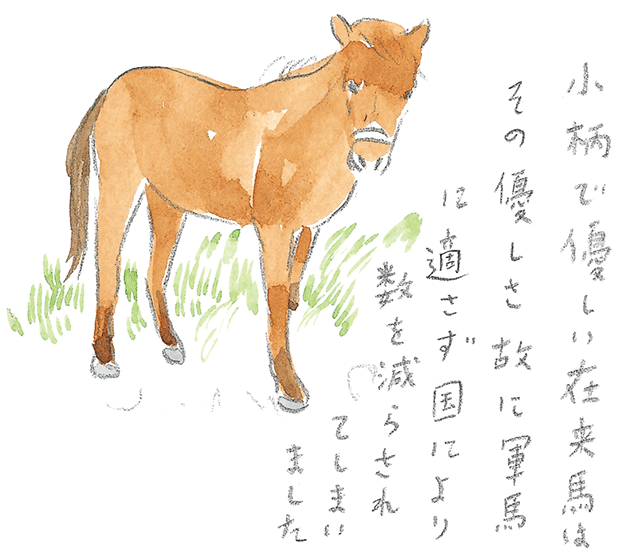 小柄で優しい在来馬は
その優しさ故に軍馬
に適さず国により
数を減らされ
てしまい
ました